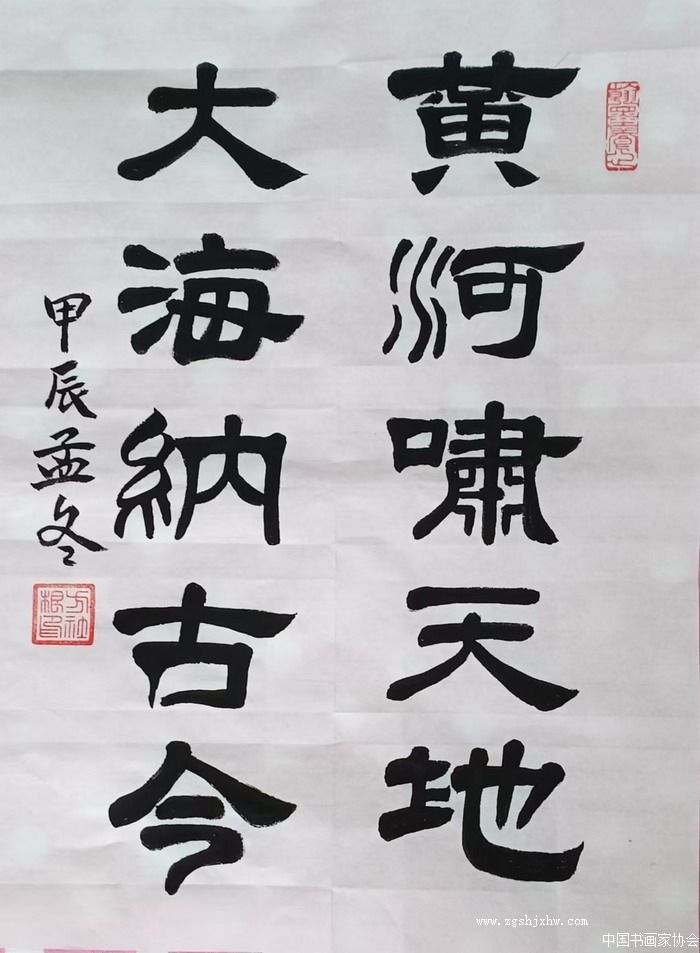 黄河啸天地
大海納古今
甲辰孟冬
www.zgshjxhw.com
中国书画家协会